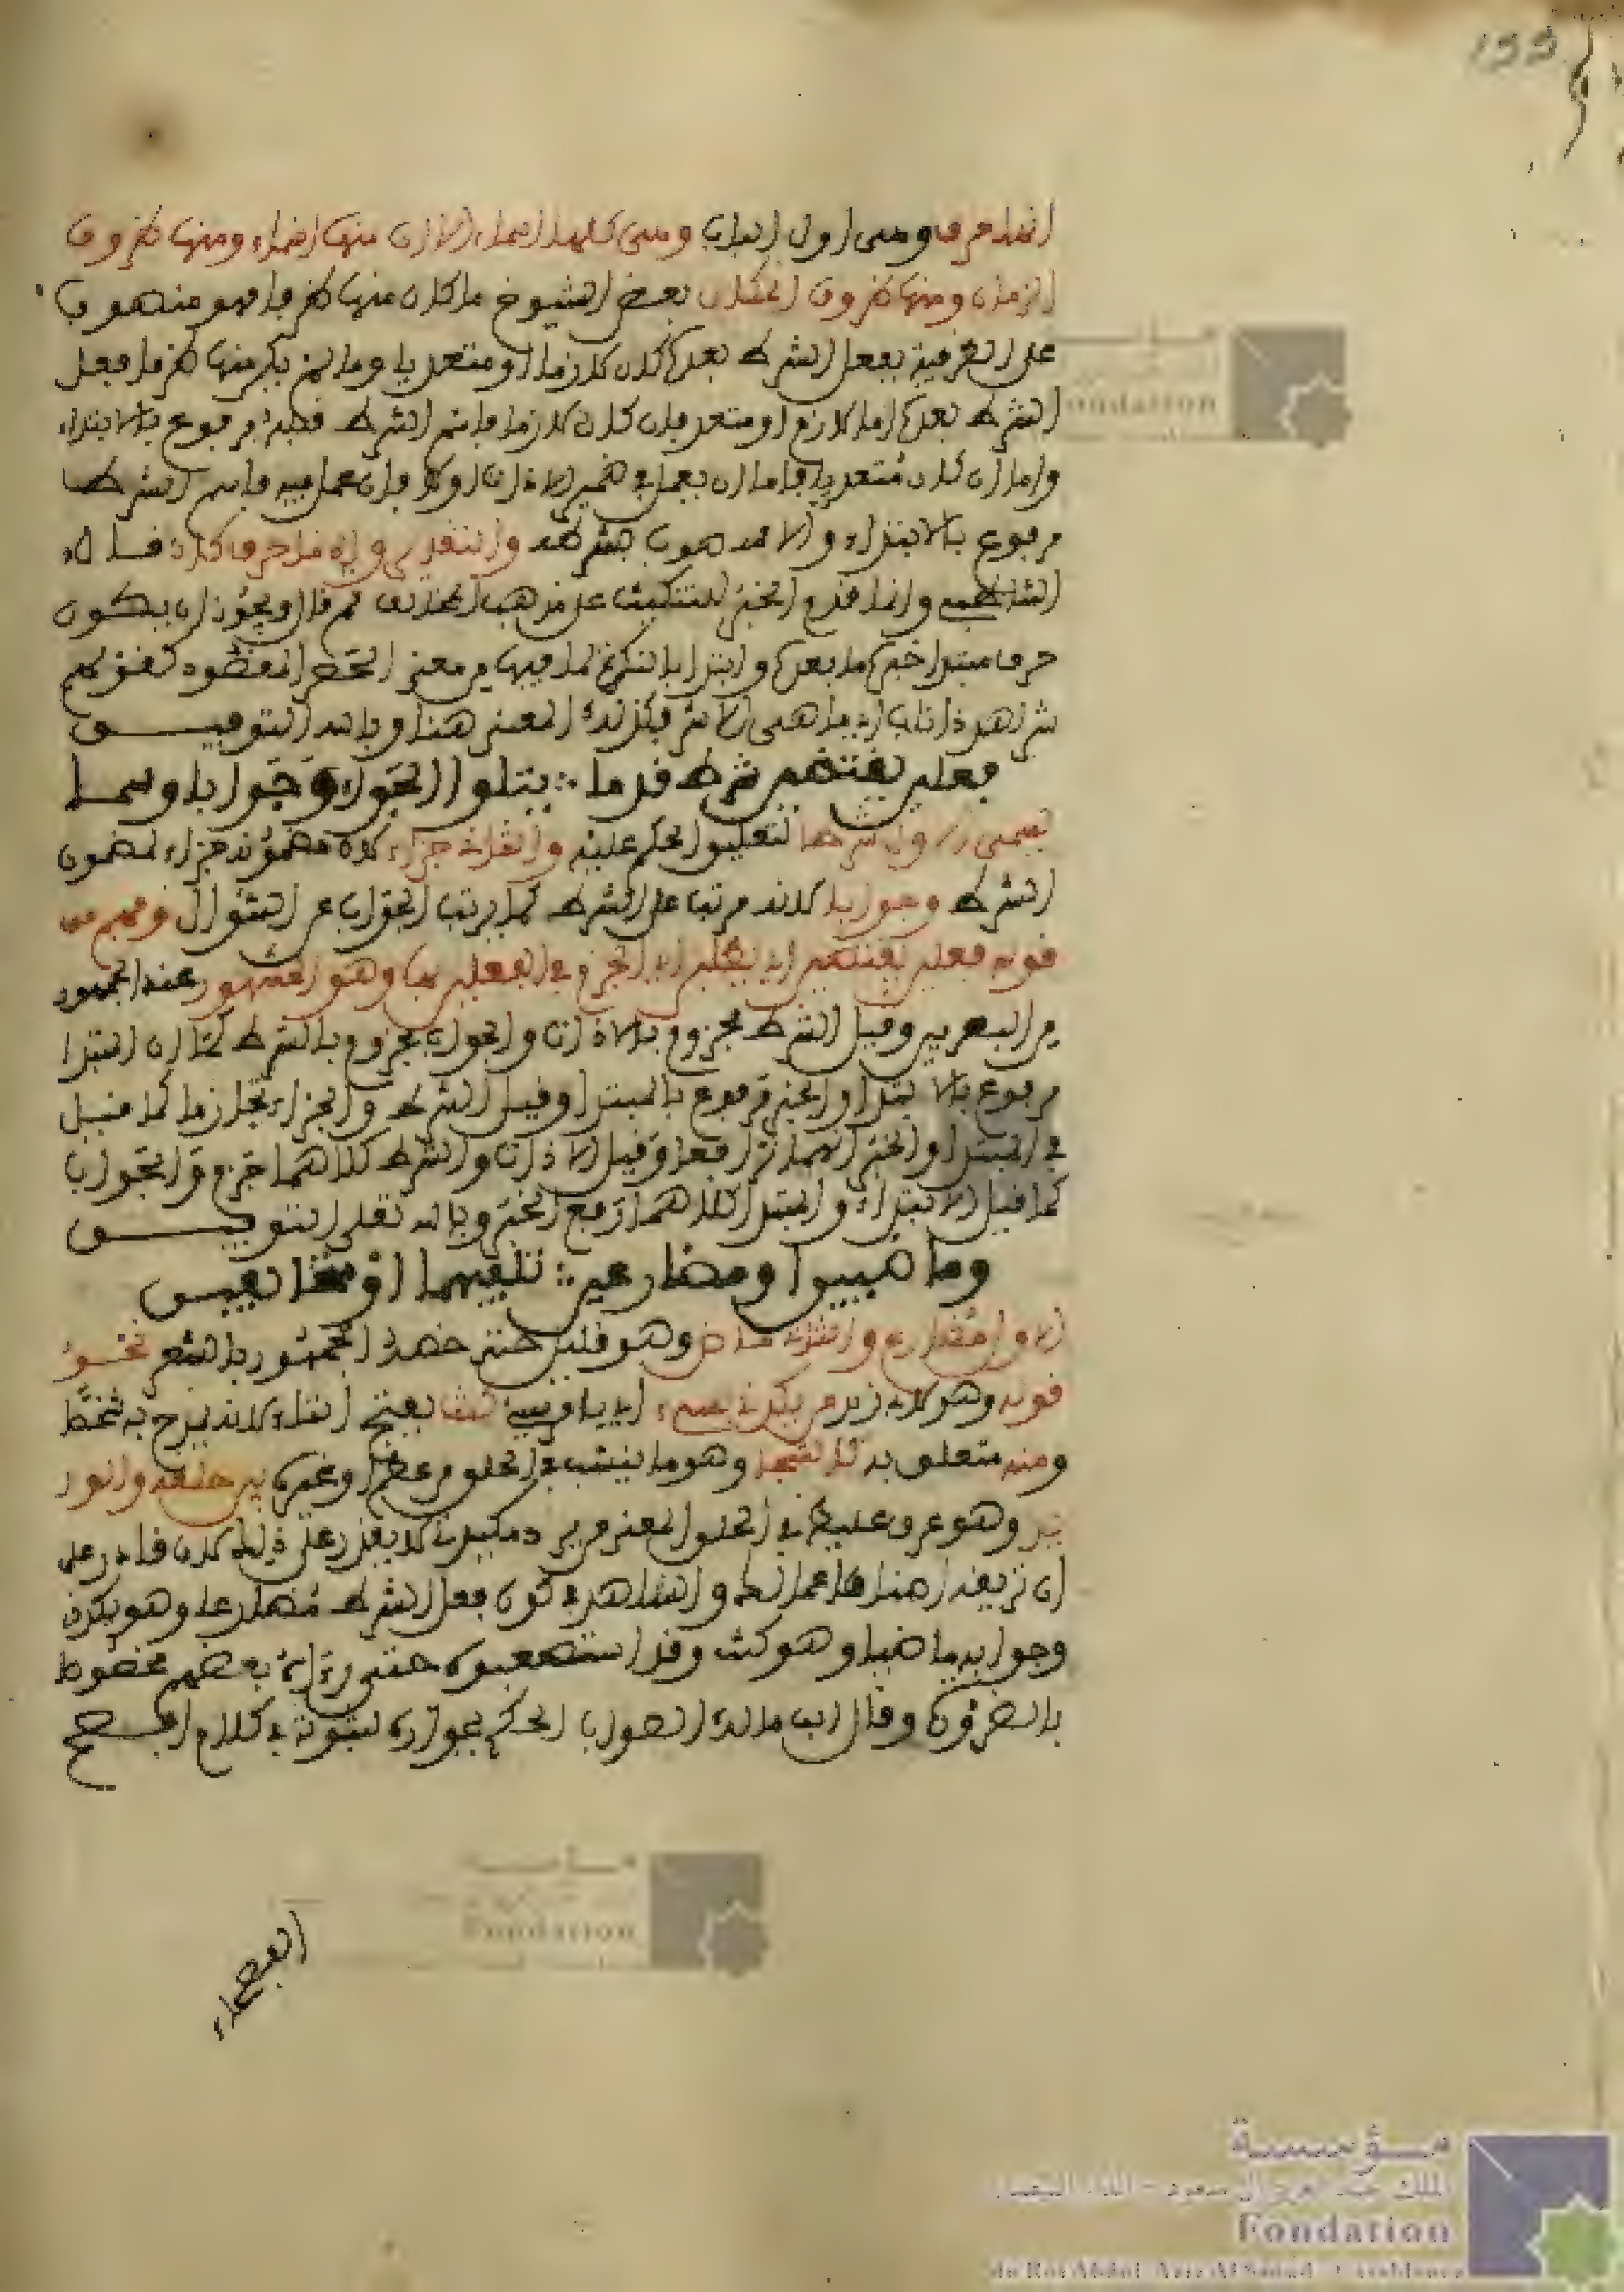 199
انها حرف ومن اول الباب ومن كلها اسماء الا ان منها اسماء ومنها ظروف
الزمان ومنها ظروف المكان بعض الشيوخ ما كان منها ظرفا فهو منصوب
على الظرفية بفعل الشرط بعده كان لازما او متعديا وما لم يكن منها ظرفا ففعل
الشرط بعده اما لازم او متعد فان كان لازما فاسم الشرط قبله مرفوع بالابتداء
واما ان كان متعديا فاما ان يعمل في ضمير الاداة او لا فان عمل فيه فاسم الشرط
مرفوع بالابتداء والا منصوب بشرطه والتقدير واذ ما حرفا كان قال
الشاطبي وانما قدم الخبر للتنكيت على مذهب المخالف ثم قال ويجوز ان يكون
حرف مبتدا خبره ما بعده وابتدا بالنكرة لما فيها من معنى الحصر المقصود كقولهم
شر اهر ذا ناب اي ما هي الا شر فكذلك المعنى هنا وبالله التوفيق
فعلين يقتضين شرط قدما ∴ يتلو الجزاء وجوابا وسما
يسمى الاول شرطا لتعليق الحكم عليه والثاني جزاء لان مضمونه جزاء لمضمون
الشرط وجوابا لانه مرتب على الشرط كما يرتب الجواب عن السؤال وفهم من
قوله فعلين يقتضين اي يطلبن ان الجزم في الفعلين بها وهو المشهور عند الجمهور
من البصريين وقيل الشرط مجزوم بالاداة والجواب مجزوم بالشرط كما ان المبتدا
مرفوع بالابتدا والخبر مرفوع بالمبتدا وقيل الشرط والجزاء تجازما كما قيل
في المبتدا والخبر انهما ترافعا وقيل الاداة والشرط كلاهما جزم والجواب
كما قيل الابتداء والمبتدا كلاهما رفع الخبر وبالله تعلى التوفيق
وماضيين او مضارعين ∴ تلفيهما او متخالفين
الاول مضارع والثاني ماض وهو قليل حتى خصه الجمهور بالشعر نحو
قوله وهو لابي زيد من يكدني بسيء اي يا قيس كنت بفتح التاء لانه يمدح به شخصا
ومنه متعلق به كالشجا وهو ما ينشب في الحلق من عظم او غيره بين حلقه والوريد
وهو عرق غليظ في الحلق المعنى من يرد مكيدتي لا يقدر على ذلك لان قادر على
والشاهد في كون فعل الشرط مضارعا وهو يكدني
وجوابه ماضيا وهو كنت وقد استضعفوه حتى رءاه بعضهم مخصوصا
بالضرورة وقال ابن مالك الصواب الحكم بجوازه لثبوته في كلام افصح
الفصحاء
مؤسسة
الملك عبد العزيز آل سعود - الدار البيضاء
Fondation
du Roi Abdul-Aziz Al Saoud - Casablanca